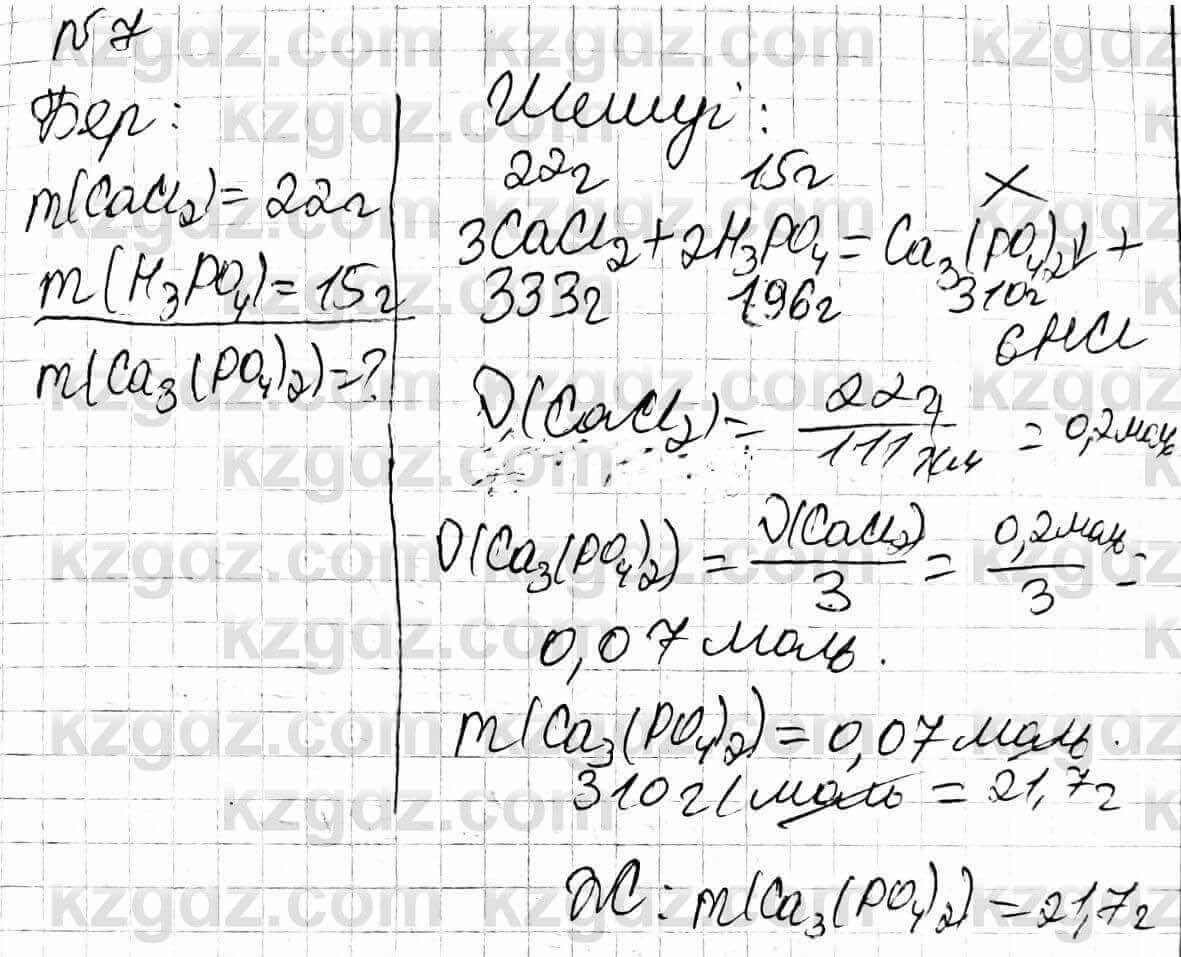 N 7
Бер:
m(CaCl₂)=22г
m(H₃PO₄)=15г
m(Ca₃(PO₄)₂)=?
Шешуі:
22г 15г X
3CaCl₂+2H₃PO₄=Ca₃(PO₄)₂↓+
333г 196г 310г
6HCl
ν(CaCl₂)= 22г/111 = 0,2моль
ν(Ca₃(PO₄)₂)= ν(CaCl₂)/3 = 0,2моль/3 =
0,07 моль.
m(Ca₃(PO₄)₂)=0,07 моль·
310г/моль = 21,7г
Ж: m(Ca₃(PO₄)₂)=21,7г
kzgdz.com